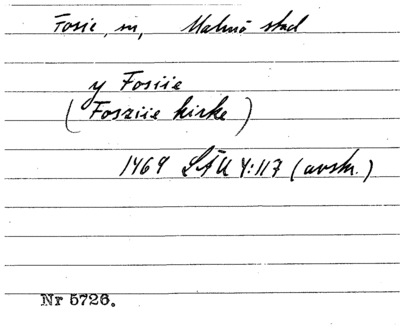 Fosie, sn, Malmö stad
y Fosiie
(Fosziie kirke)
1469 LÄU 4:117 (avskr.)
Nr 5726.